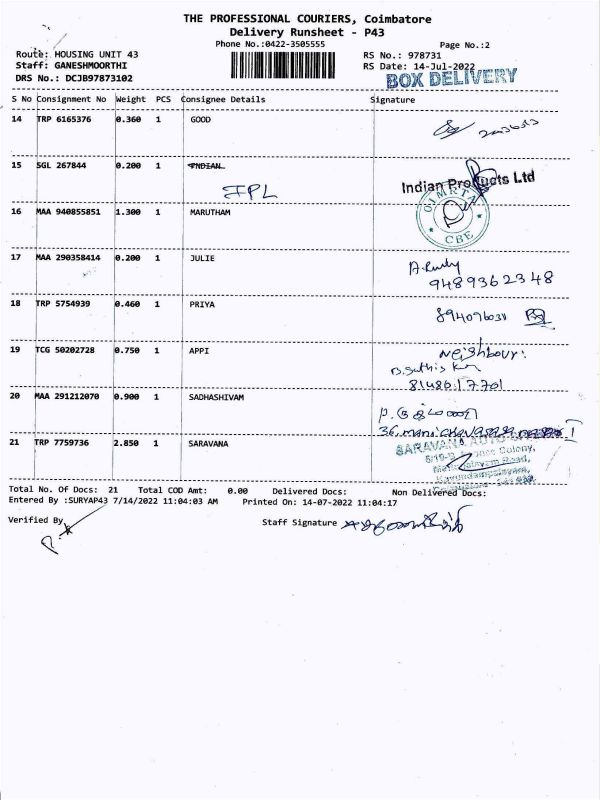 THE PROFESSIONAL COURIERS, Coimbatore
Delivery Runsheet - P43
Phone No.:0422-3505555
Page No.:2
Route: HOUSING UNIT 43
RS No.: 978731
Staff: GANESHMOORTHI
RS Date: 14-Jul-2022
DRS No.: DCJB97873102
BOX DELIVERY
S No Consignment No Weight PCS Consignee Details Signature
14 TRP 6165376 0.360 1 GOOD
15 SGL 267844 0.200 1 INDIAN
IPL
Indian Products Ltd
16 MAA 940855851 1.300 1 MARUTHAM
CBE
17 MAA 290358414 0.200 1 JULIE
9489362348
18 TRP 5754939 0.460 1 PRIYA
19 TCG 50202728 0.750 1 APPI
Neighbour:
20 MAA 291212070 0.900 1 SADHASHIVAM
21 TRP 7759736 2.850 1 SARAVANA
SARAVANA AUTO
Colony,
Road,
Total No. Of Docs: 21 Total COD Amt: 0.00 Delivered Docs: Non Delivered Docs:
Entered By :SURYAP43 7/14/2022 11:04:03 AM Printed On: 14-07-2022 11:04:17
Verified By
Staff Signature